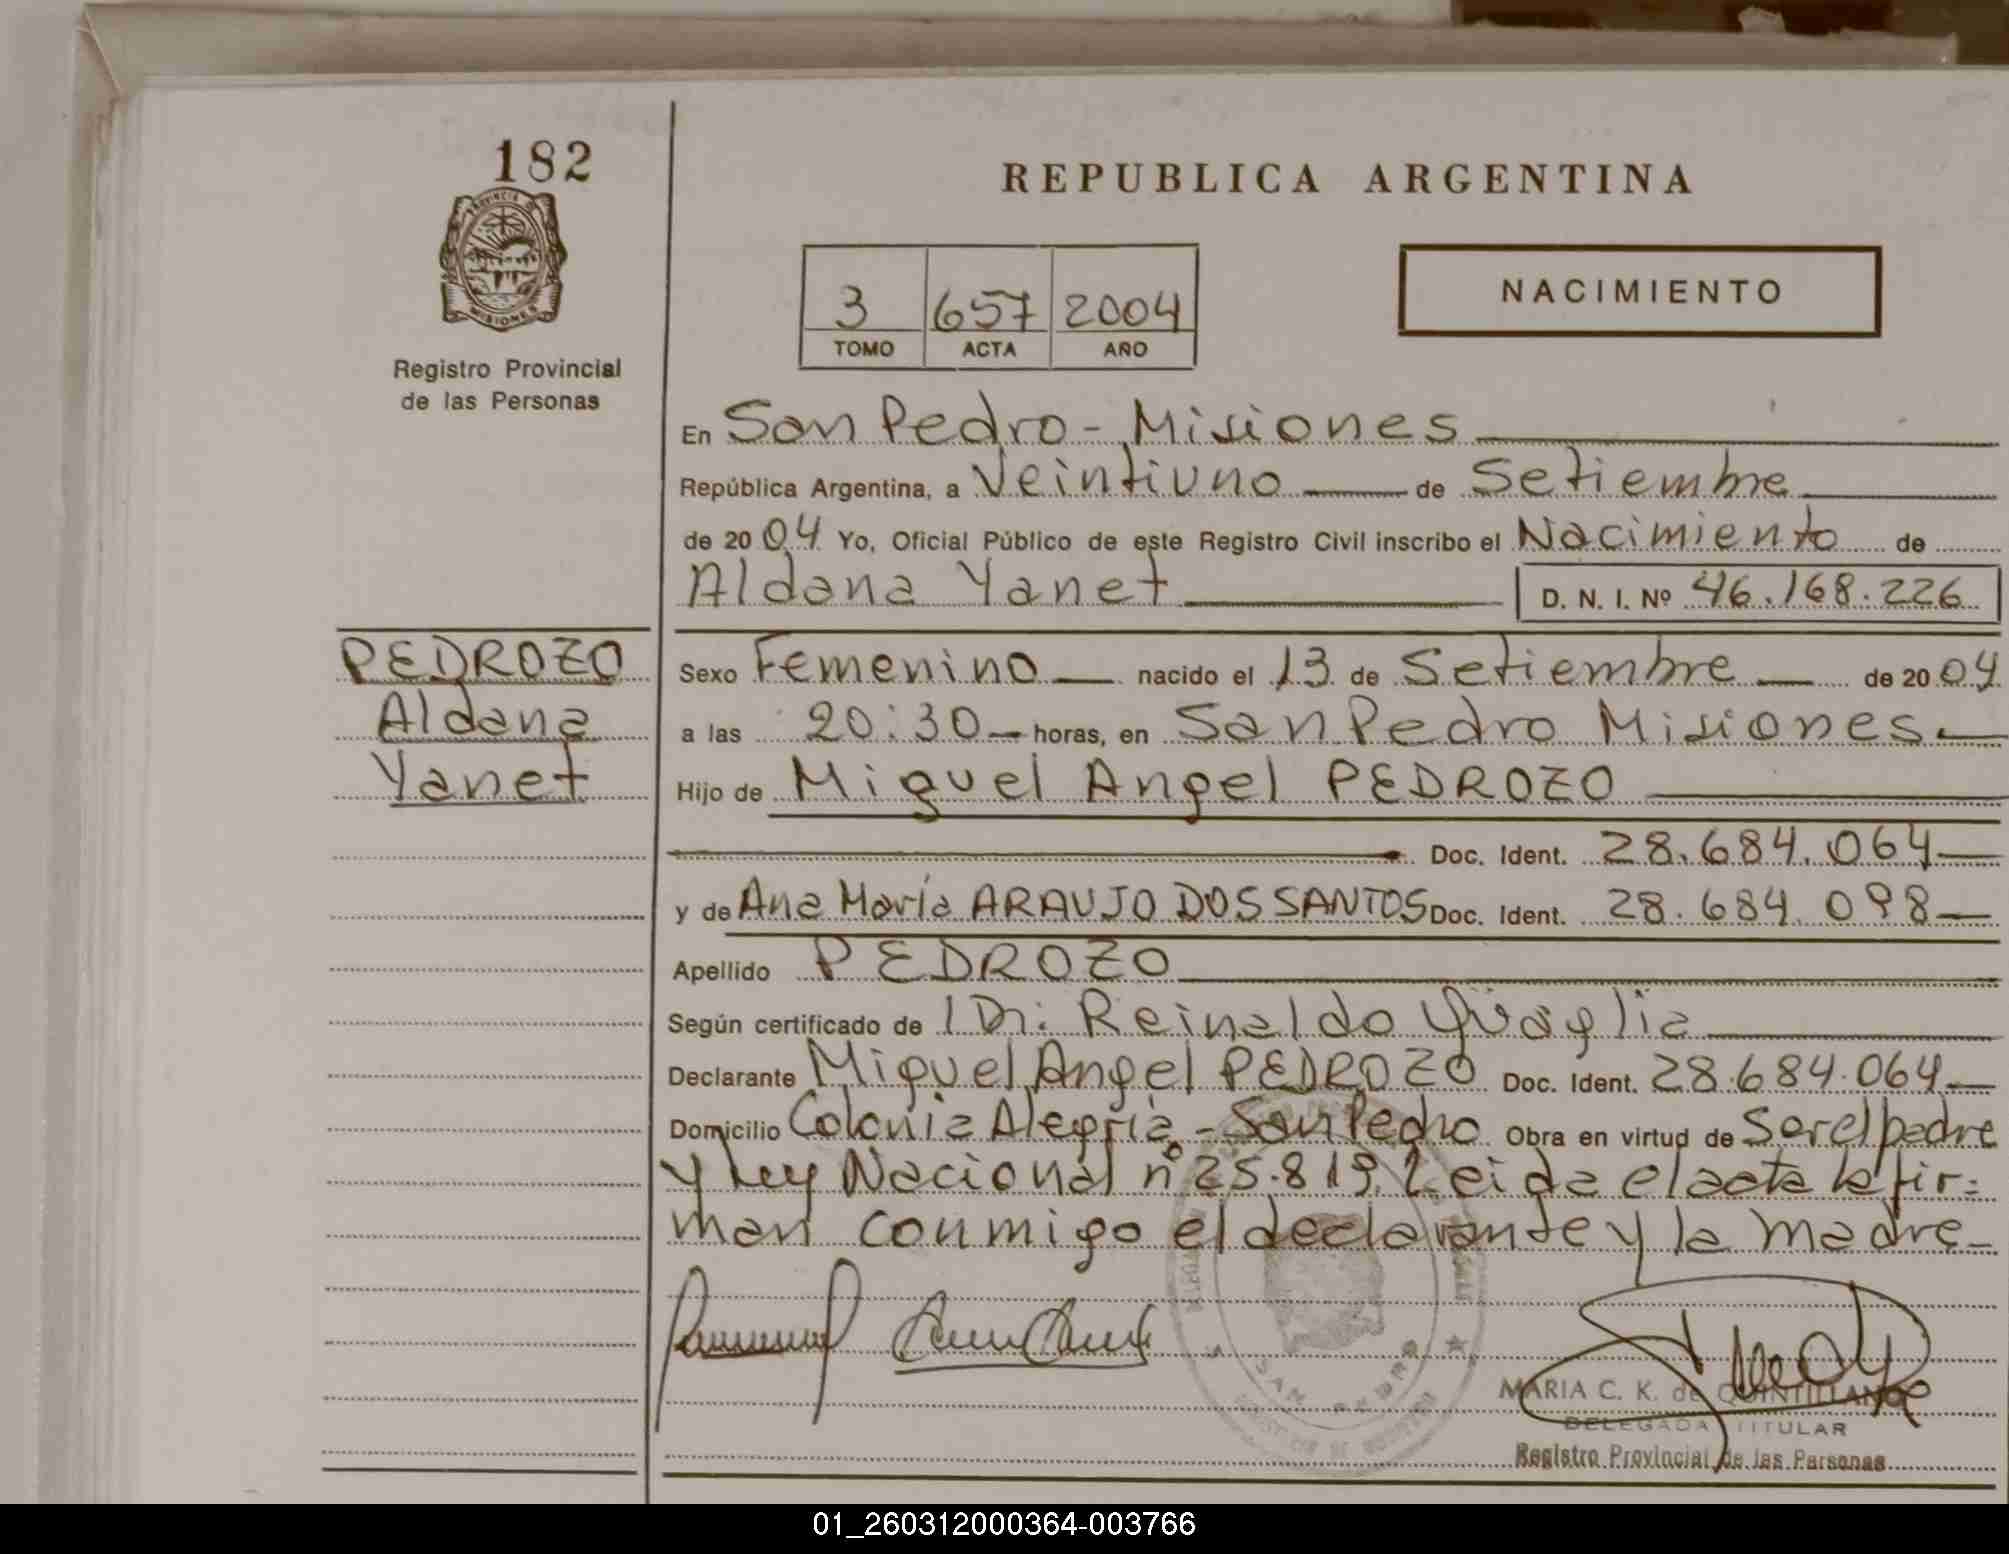 182
PROVINCIA DE
MISIONES
Registro Provincial
de las Personas
REPUBLICA ARGENTINA
3 657 2004
TOMO ACTA AÑO
NACIMIENTO
En San Pedro - Misiones
República Argentina, a Veintiuno de Setiembre
de 2004 Yo, Oficial Público de este Registro Civil inscribo el Nacimiento de
Aldana Yanet D. N. I. Nº 46.168.226
PEDROZO
Aldana
Yanet
Sexo Femenino nacido el 13 de Setiembre de 2004
a las 20:30 horas, en San Pedro Misiones
Hijo de Miguel Angel PEDROZO
Doc. Ident. 28.684.064
y de Ana María ARAUJO DOS SANTOS Doc. Ident. 28.684.098
Apellido PEDROZO
Según certificado de Dr: Reinaldo
Declarante Miguel Angel PEDROZO Doc. Ident. 28.684.064
Domicilio Colonia Alegría - San Pedro Obra en virtud de Ser el padre
y Ley Nacional nº 25.819. Leida el acta la fir=
man conmigo el declarante y la madre
SAN PEDRO
MARIA C. K. de QUINTILLAN
DELEGADA TITULAR
Registro Provincial de las Personas
01_260312000364-003766